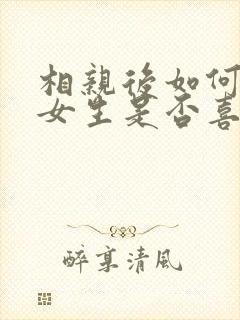 相親後如何
女生是否喜
醉享清風